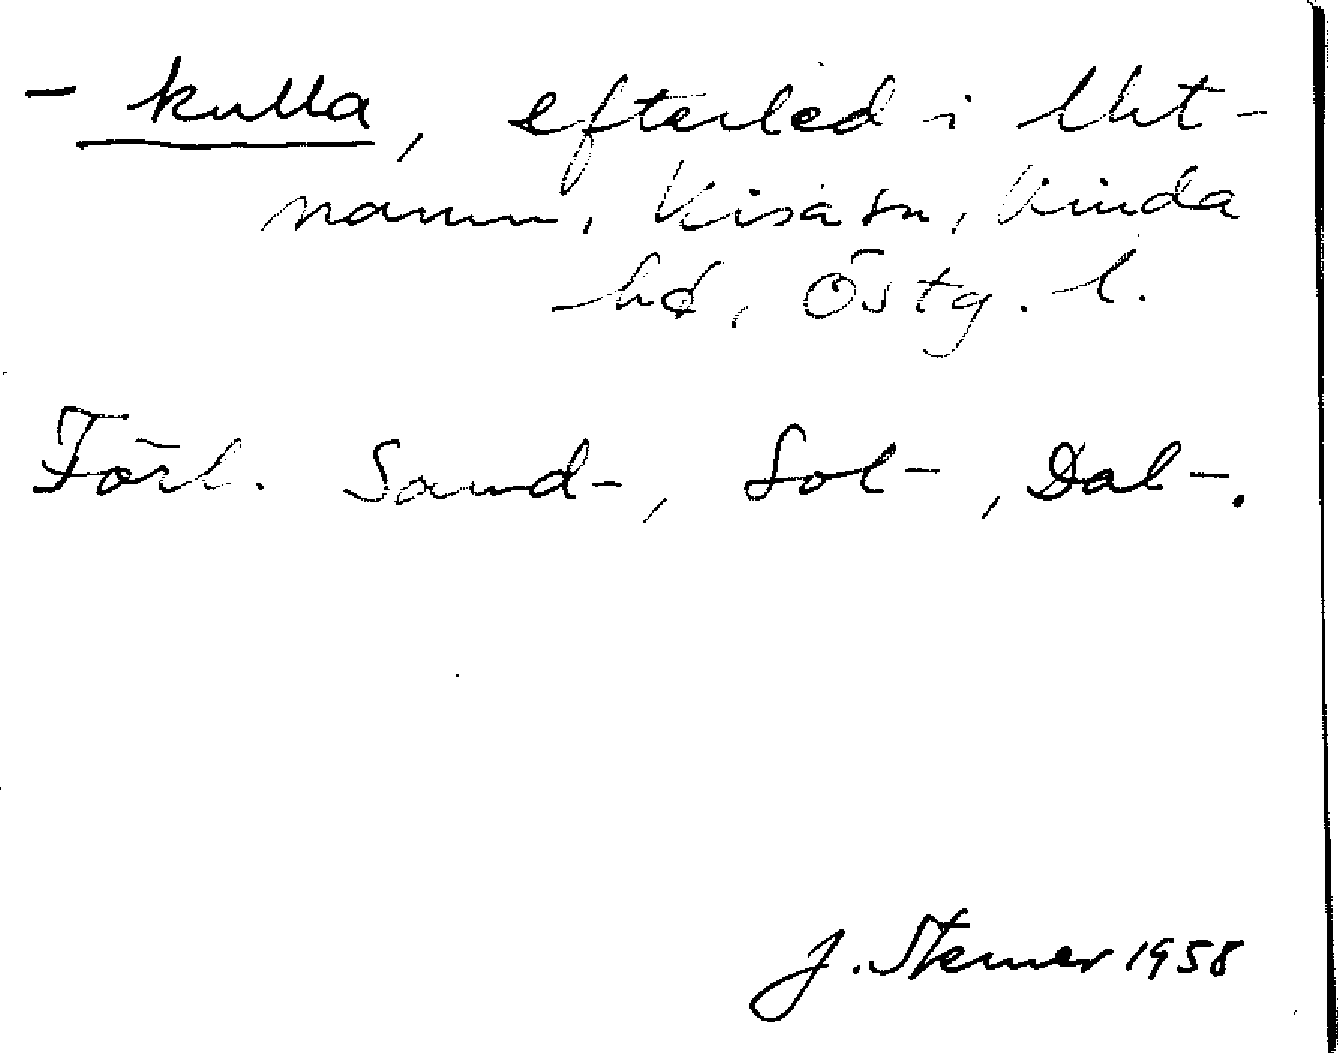 - kulla, efterled i lht-
namn, Kisa sn, Kinda
hd, Östg. l.
Förl. Sand-, Sol-, Dal-.
J. Sterner 1958